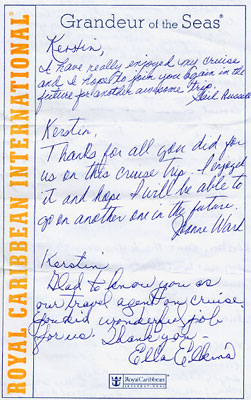 Grandeur of the Seas®
ROYAL CARIBBEAN INTERNATIONAL®
Kerstin,
I have really enjoyed my cruise
and I hope to join you again in the
future for another awesome trip.
Russell
Kerstin,
Thanks for all you did for
us on this cruise trip. I enjoyed
it and hope I will be able to
go on another one in the future.
Joanne Ward
Kerstin
Glad to know you as
our travel agent on cruise.
You did wonderful job
for us. Thank you -
Ella Elkins
RoyalCaribbean
INTERNATIONAL